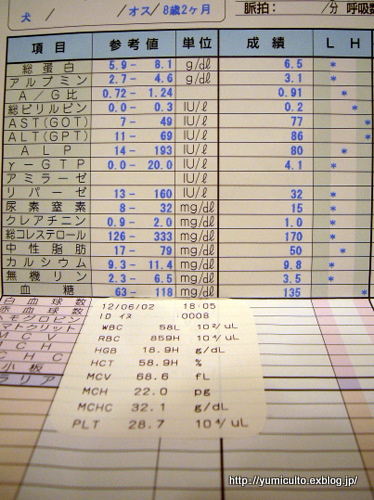 犬 / / オス/ 8歳2ヶ月 脈拍: /分 呼吸数
項目 参考値 単位 成績 L H
総蛋白 5.9 - 8.1 g/dl 6.5 *
アルブミン 2.7 - 4.6 g/dl 3.1 *
A/G比 0.72 - 1.24 0.91 *
総ビリルビン 0.0 - 0.3 IU/ℓ 0.2 *
AST(GOT) 7 - 49 IU/ℓ 77 *
ALT(GPT) 11 - 69 IU/ℓ 86 *
ALP 14 - 193 IU/ℓ 80 *
γ-GTP 0.0 - 20.0 IU/ℓ 4.1 *
アミラーゼ IU/ℓ
リパーゼ 13 - 160 IU/ℓ 32 *
尿素窒素 8 - 32 mg/dl 15 *
クレアチニン 0.9 - 2.0 mg/dl 1.0 *
総コレステロール 126 - 333 mg/dl 170 *
中性脂肪 17 - 79 mg/dl 50 *
カルシウム 9.3 - 11.4 mg/dl 9.8 *
無機リン 2.3 - 6.5 mg/dl 3.5 *
血糖 63 - 118 mg/dl 135 *
白血球数
赤血球数
マトクリット
MCV
MCH
CHC
小板
ラリア
12/06/02 18:05
ID イヌ :0008
WBC 58L 10²/uL
RBC 859H 10⁴/uL
HGB 18.9H g/dL
HCT 58.9H %
MCV 68.6 fL
MCH 22.0 pg
MCHC 32.1 g/dL
PLT 28.7 10⁴/uL
http://yumiculto.exblog.jp/